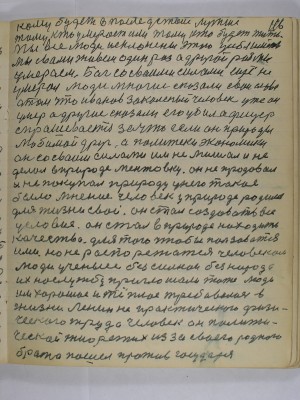 кому будет в последствии лучше
186
тому, кто умерает или тому кто будет жить.
Мы все люди и склонны этого
мы сами живем один раз а другой раз мы
умераем. Бог со своими силами еще не
умерал люди многие сказали свои
о том что иванов законный человек уже он
умер а другие сказали его убил
спрашивается за что если он природы
любимой друг, а политики экономики
он со своими силами им не мешал и не
делал в природе он не продовал
и не покупал природу у него такое
было мнение человек в природе родился
для жизни своей. он стал создовать все
условие. он стал в природе находить
качества для того чтобы пользоватся
ими но не роспоряжатся человеком
люди ученые без силков без народа
их на службу приглосили тоже люди
им хорошое и тёплое требовалося в
жизни Ленин не практического физи-
ческого труда человек он полити-
ческой из за своего родного
брата пошел против государя